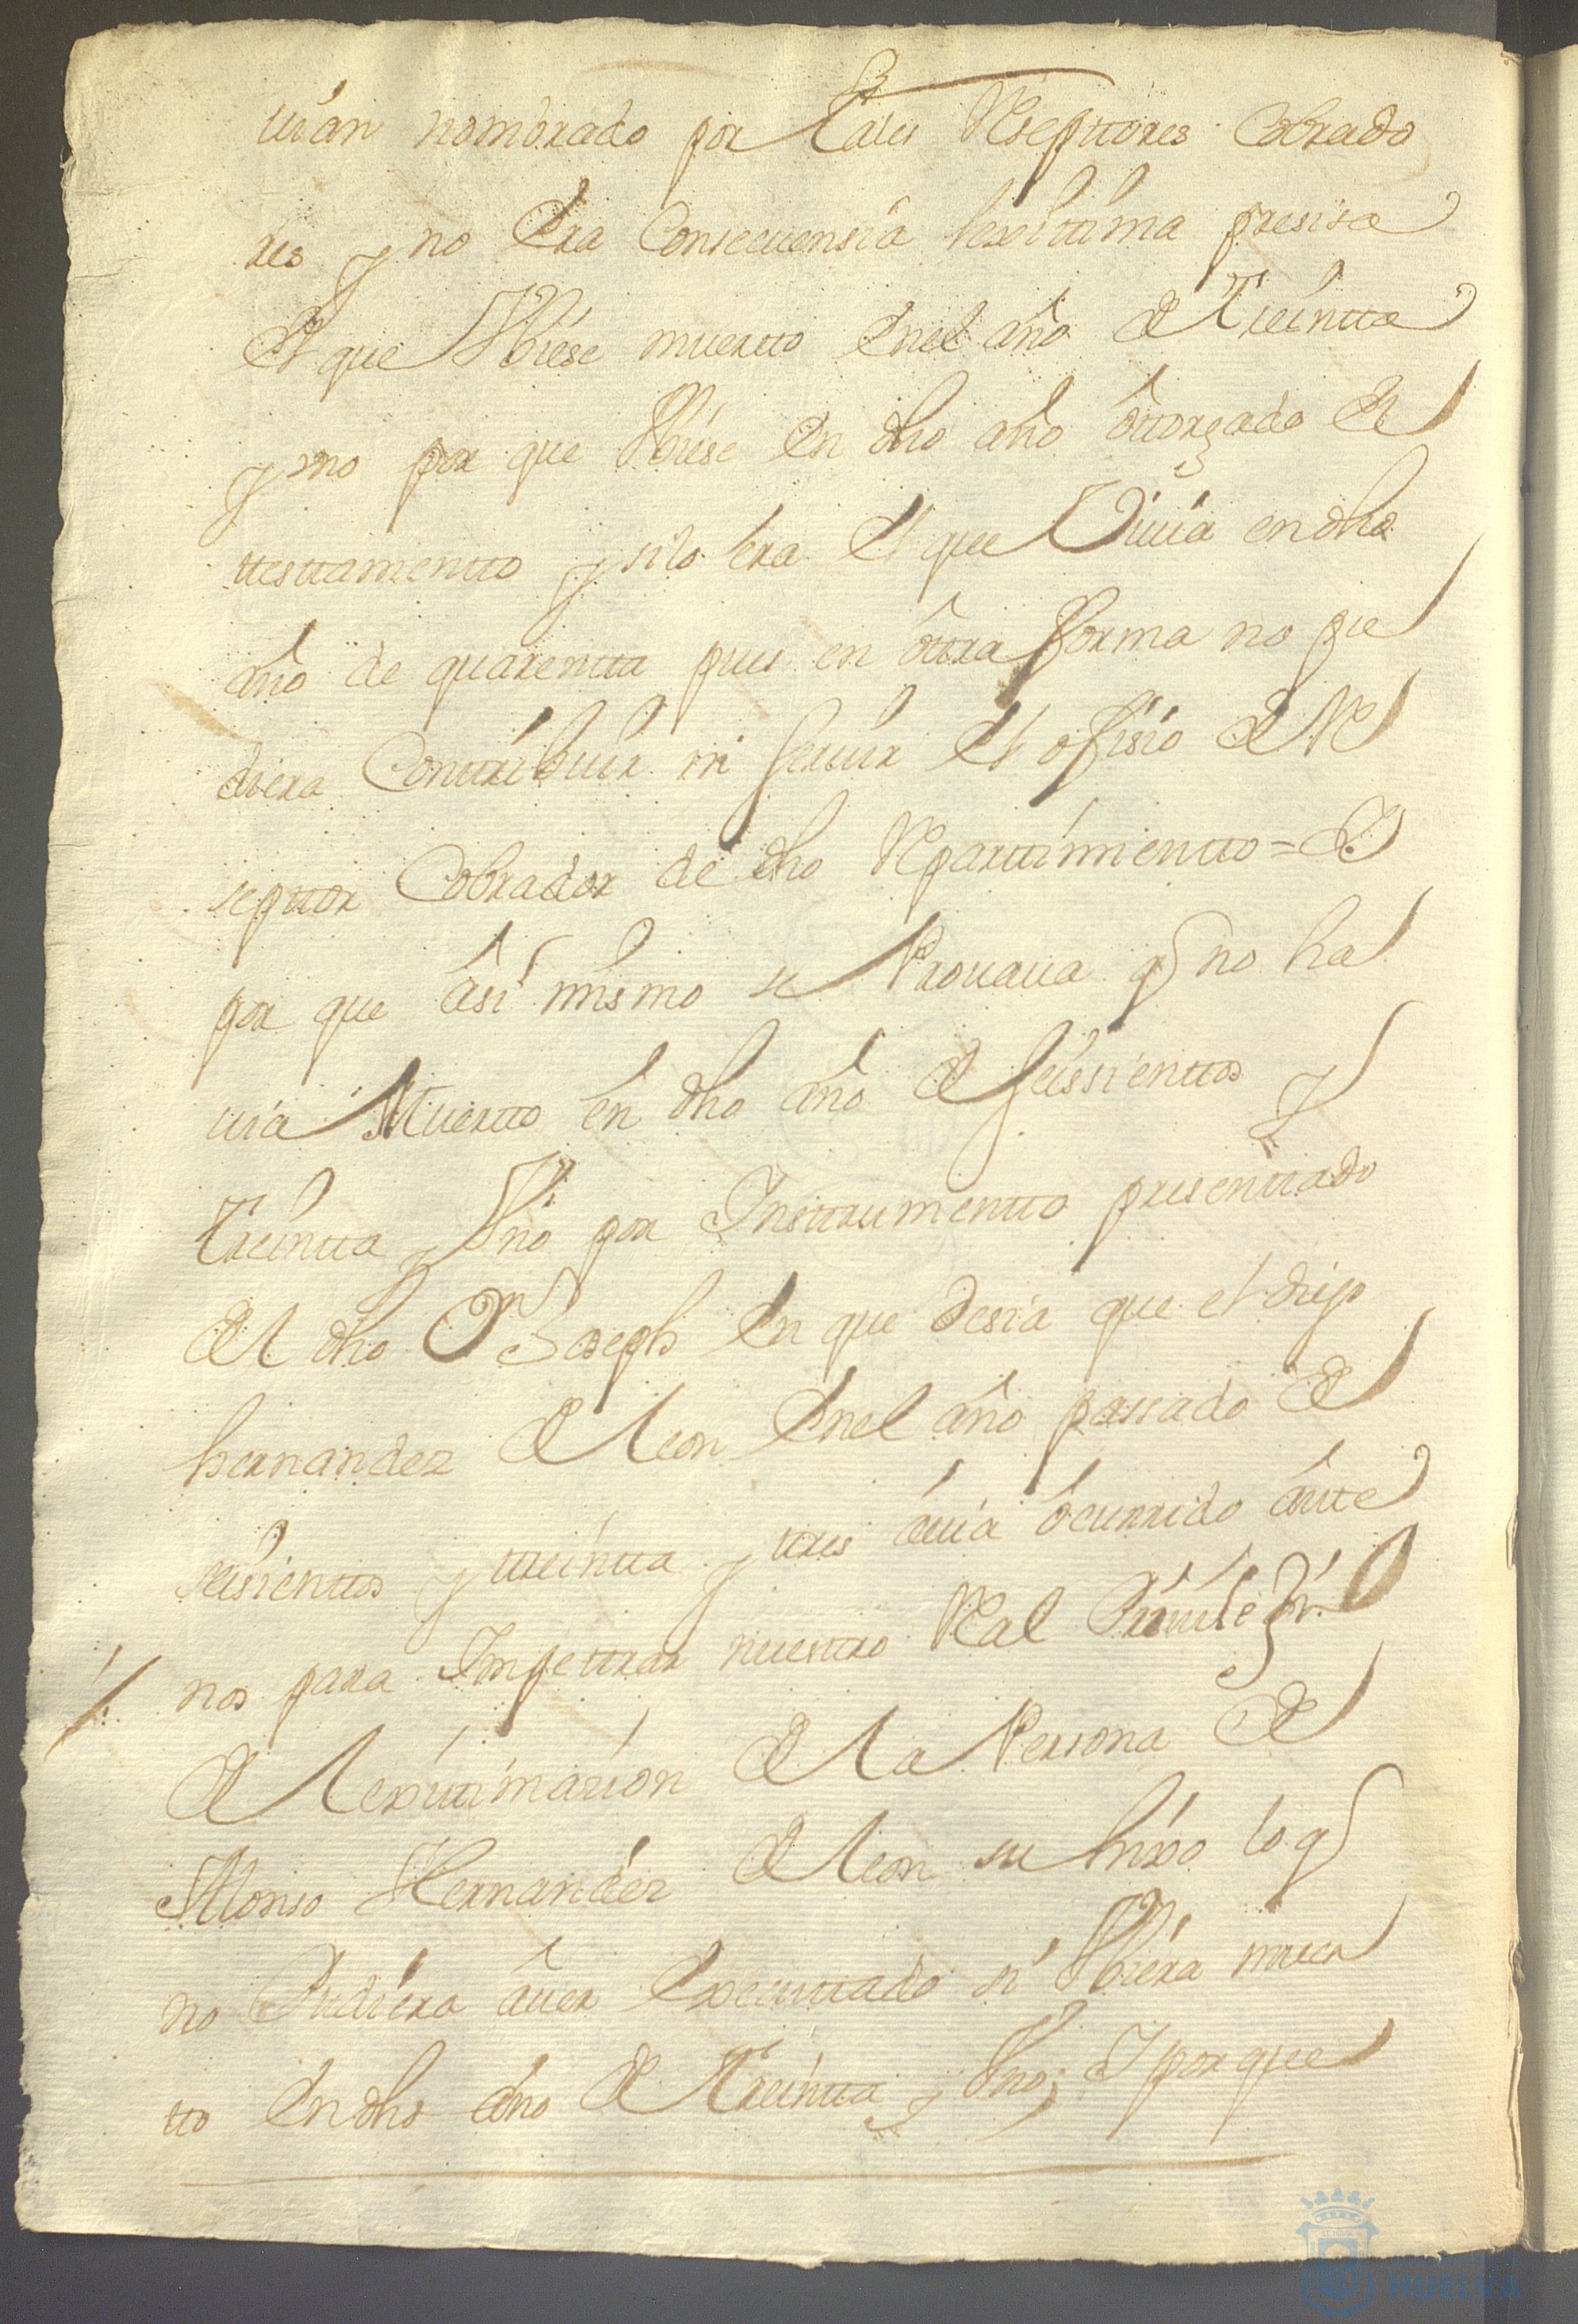 uian nombrado por tales Reseptores Cobrado
res y no Era Consecuensia lexitima presisa
El que Vbiese muerto Enel año de Treinta
y vno por que Vbiese En dho año ôttorgado El
ttesttamentto y silo hera El que Viuia en dho
año de quarentta pues en ôttra forma no pu
diera Conttribuir ni seruir El ofisio de Re
septtor Cobrador de dho Reparttimientto = Y
por que âsi mismo se Prouaua q no ha
uia Muertto en dho año de seissienttos y
Treintta y Vno por Insttrumentto presenttado
del dho Dn Joseph En que desia que el dicho
hernandez de Leon Enel año passado de
seisienttos y ttreintta y ttres âuia ôcurrido ântte
nos para Impettrar nuestro Real Priuilegio
de Lexittimacion de La Persona de
Alonso Hernandez de Leon su hixo lo q
no Pudiera âuer Executtado si Vbiera muer
tto En dho año de Treintta y Vno; Y porque
HUELVA